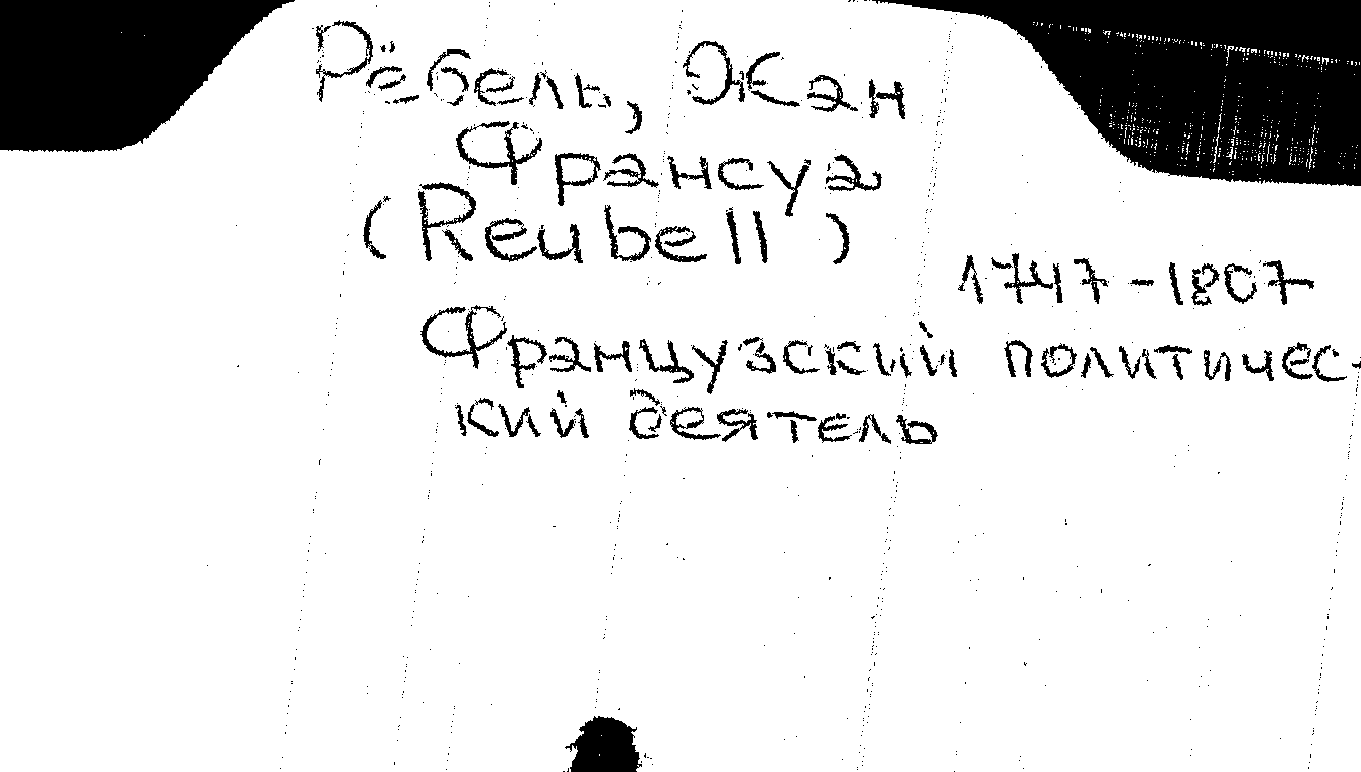 Рёбель, Жан
Франсуа
(Reubell)
1747-1807
Французский политичес-
кий деятель